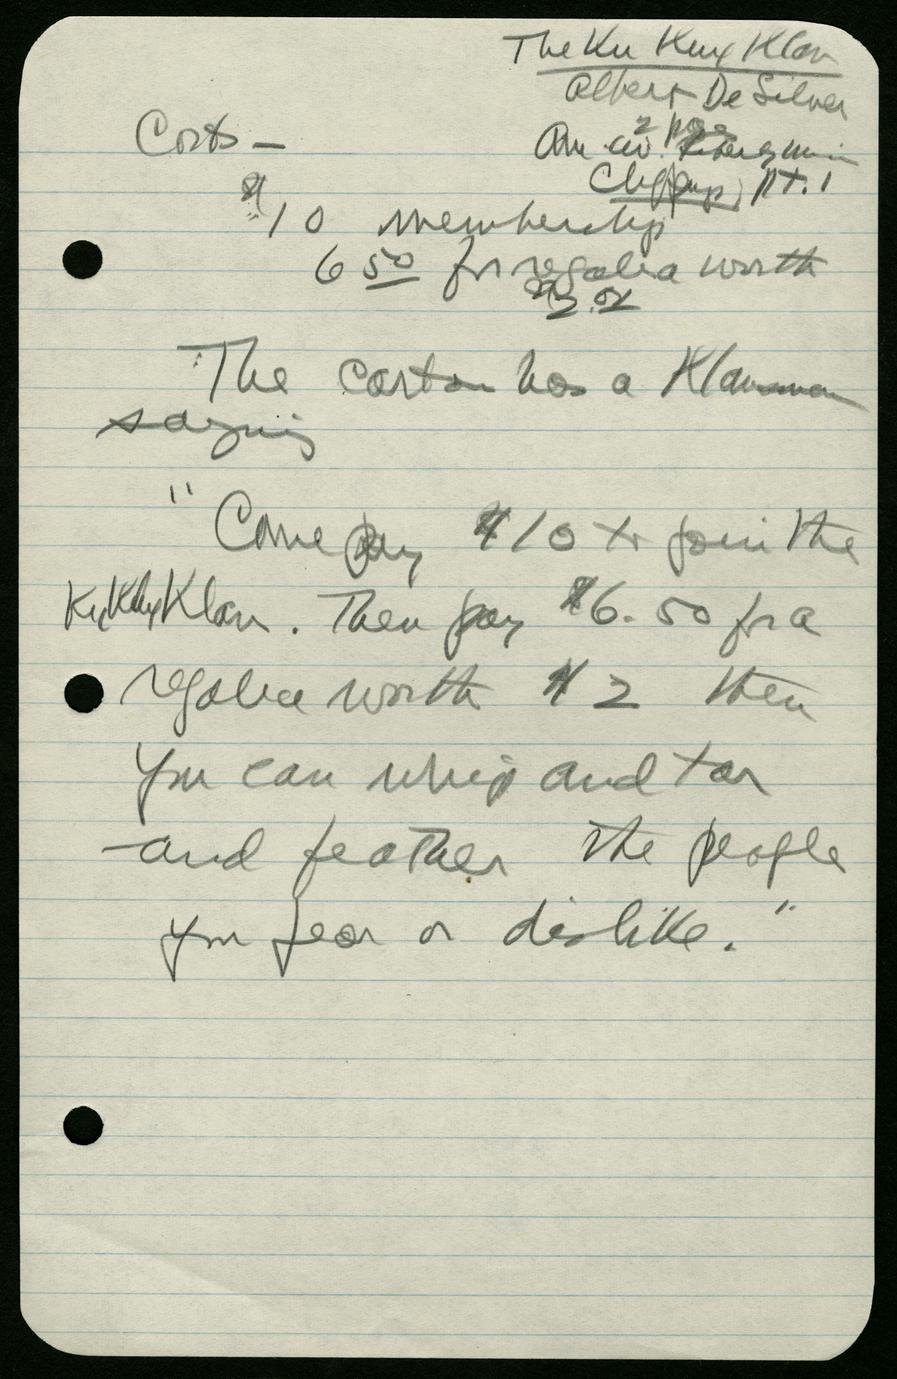 The Ku Klux Klan
Albert De Silver
2 pgs
Am. Civ. Liberty Union
Clippings, pt. 1
Costs —
$10 membership
6 50 for regalia worth
$2.00
The carton has a Klansman
saying
" Come pay $10 to join the
Ku Klux Klan. Then pay $6.50 for a
regalia worth $2 then
you can whip and tar
and feather the people
you fear or dislike."